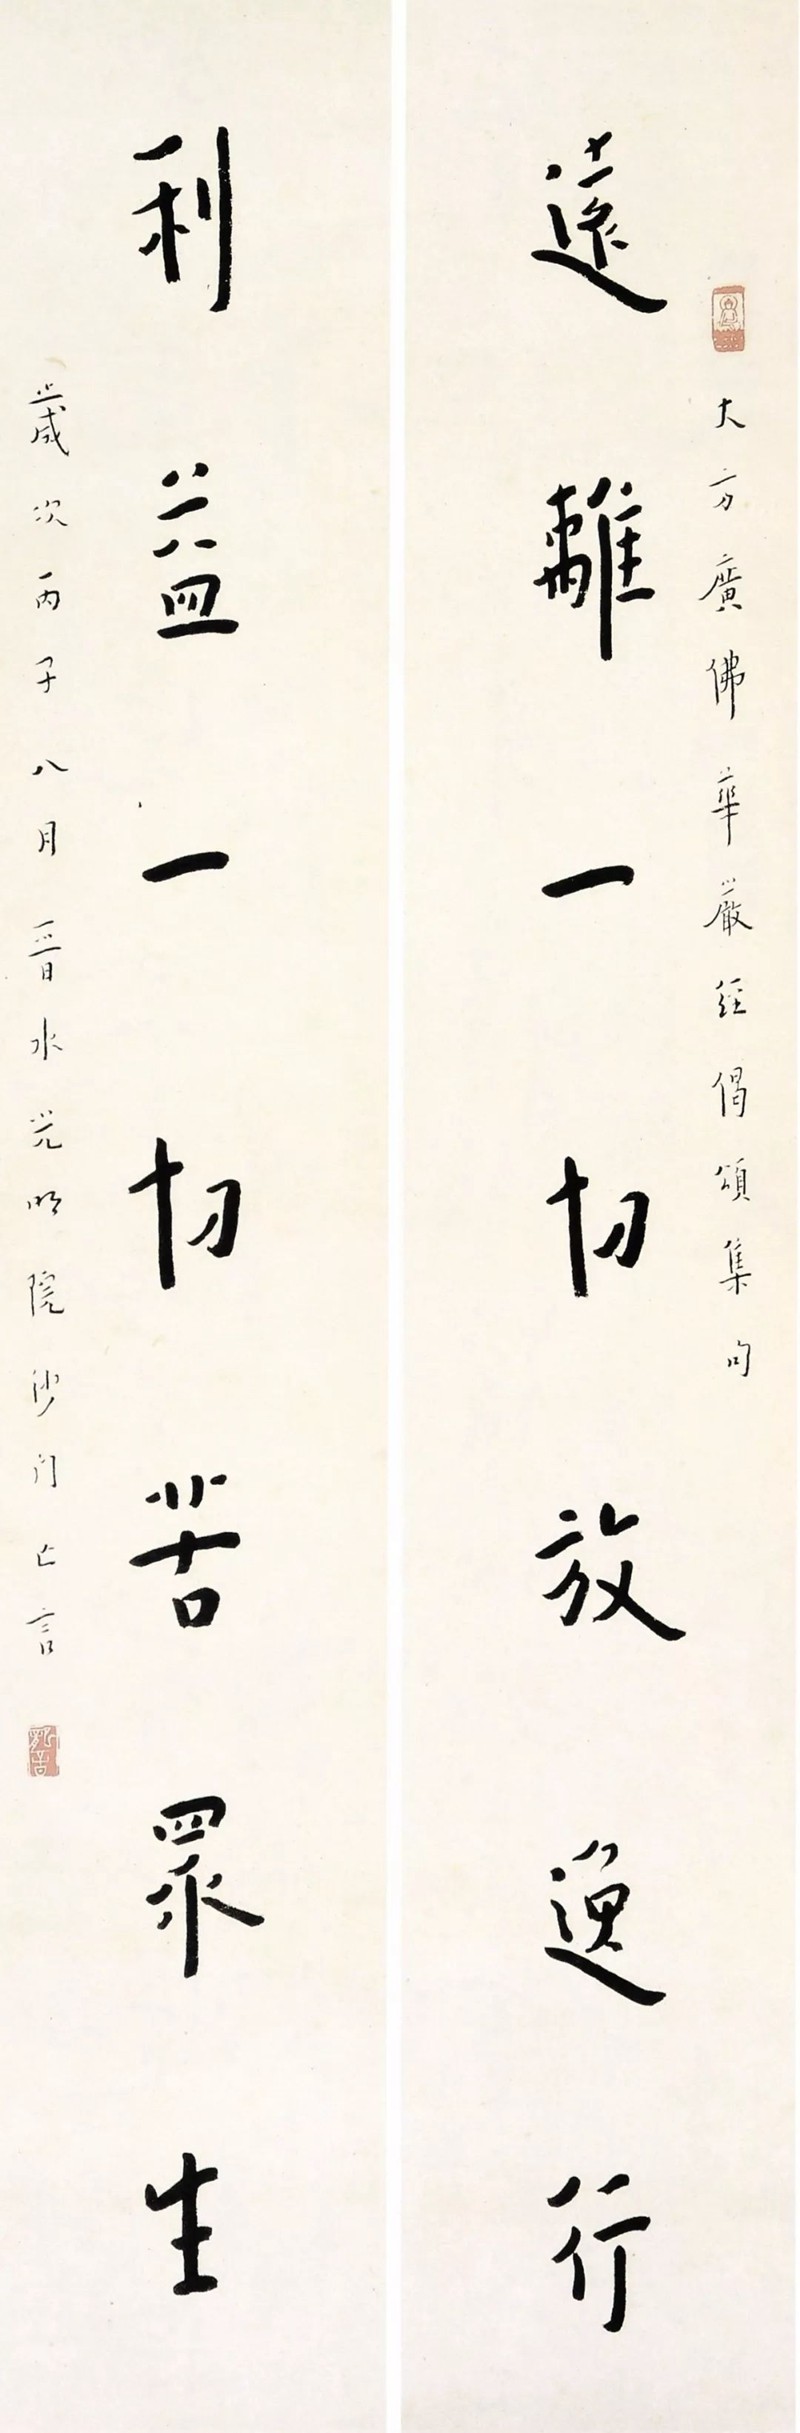 大方廣佛華嚴經偈頌集句
遠離一切放逸行
利益一切苦眾生
歲次丙子八月晉水光明院沙門亡言